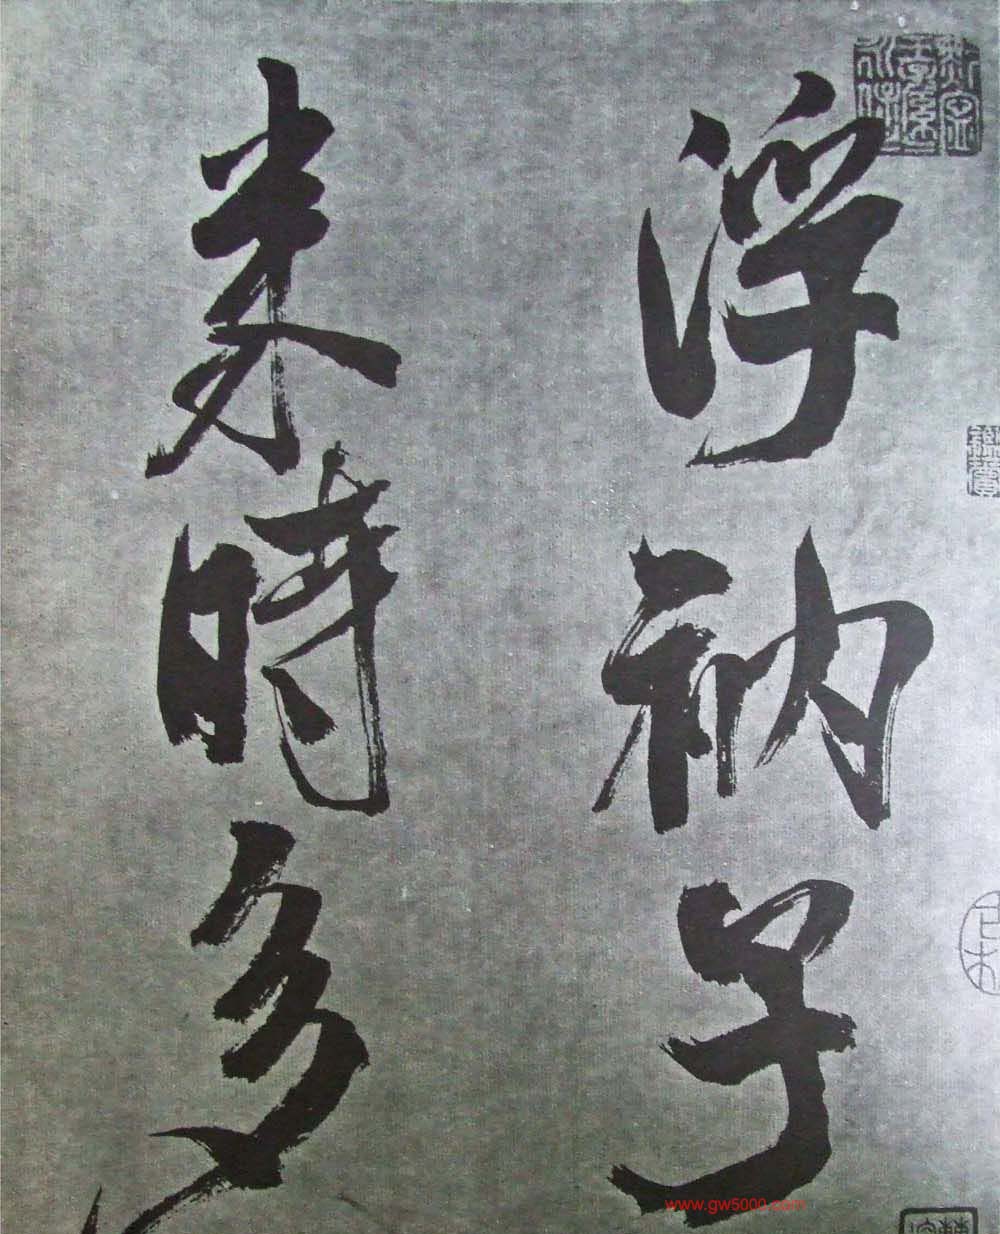 浮衲子
来時多
www.gw5000.com